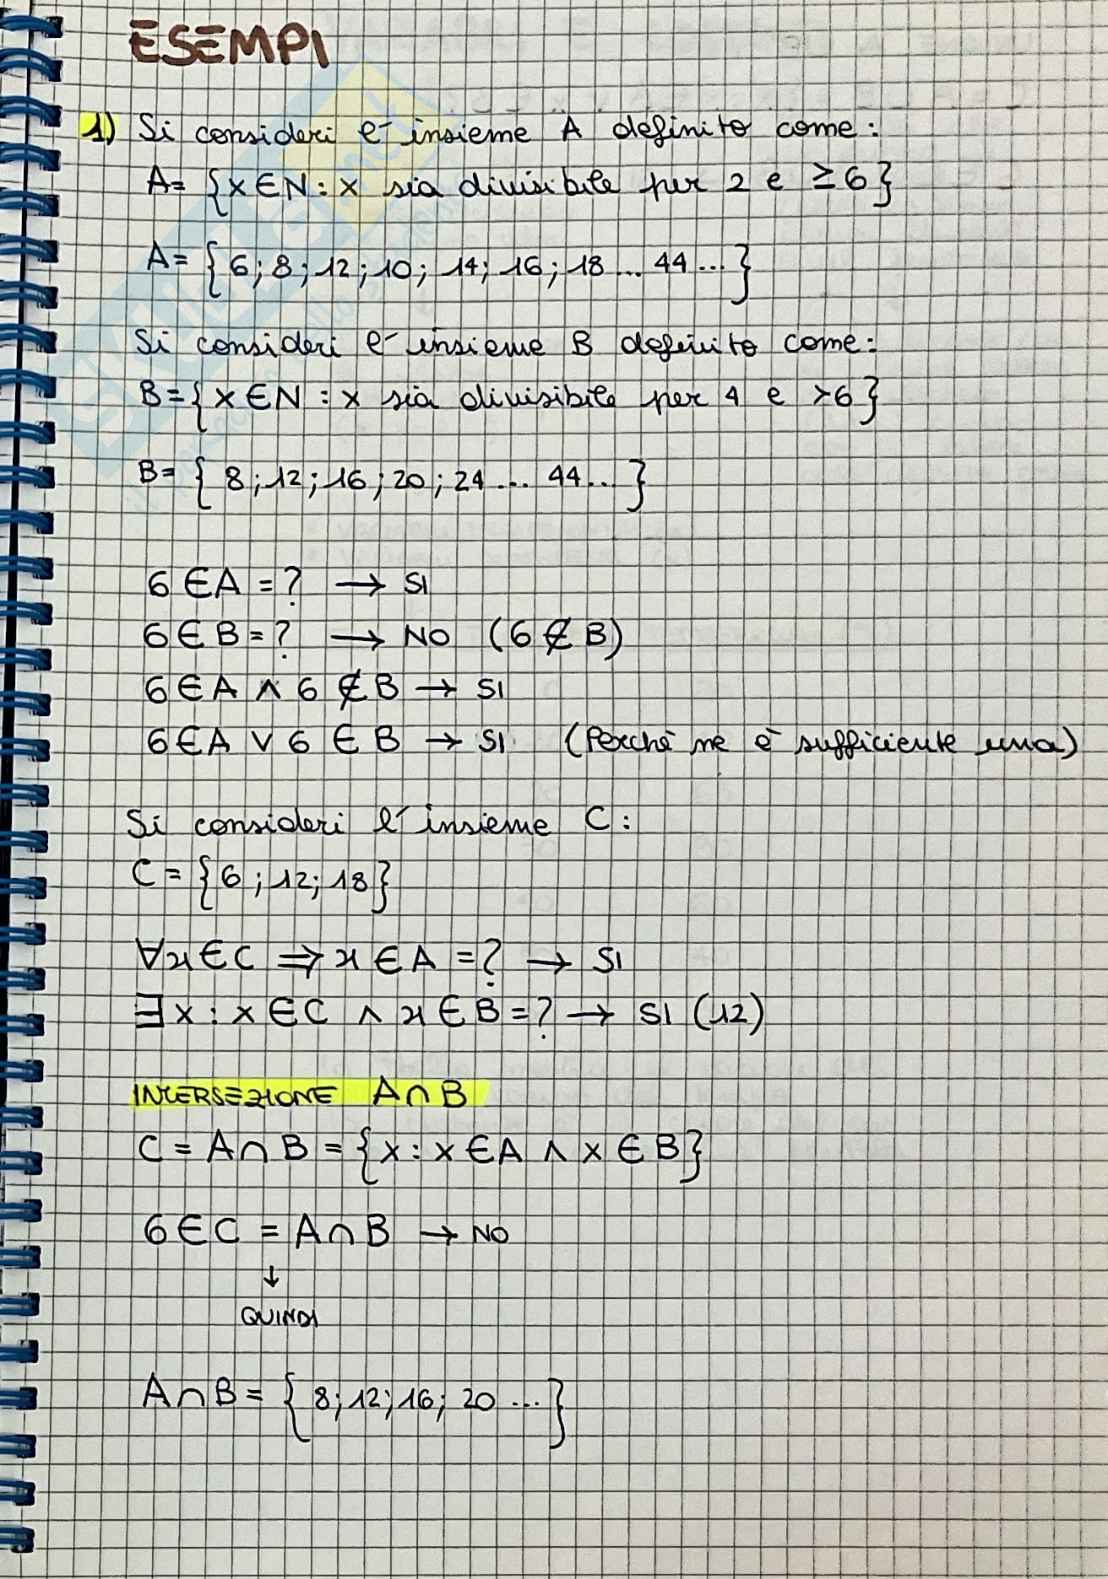 ESEMPI
1) Si consideri l'insieme A definito come:
A= {x∈N : x sia divisibile per 2 e ≥6}
A= {6; 8; 12; 10; 14; 16; 18 ... 44 ...}
Si consideri l'insieme B definito come:
B={x∈N : x sia divisibile per 4 e >6}
B= {8; 12; 16; 20; 24 ... 44...}
6∈A =? → SI
6∈B=? → NO (6∉B)
6∈A ∧ 6∉B → SI
6∈A ∨ 6∈B → SI (Perché ne è sufficiente una)
Si consideri l'insieme C:
C = {6; 12; 18}
∀x∈C ⇒ x∈A =? → SI
∃x : x∈C ∧ x∈B=? → SI (12)
INTERSEZIONE A∩B
C = A∩B = {x : x∈A ∧ x∈B}
6∈C = A∩B → NO
↓
QUINDI
A∩B = {8; 12; 16; 20 ...}